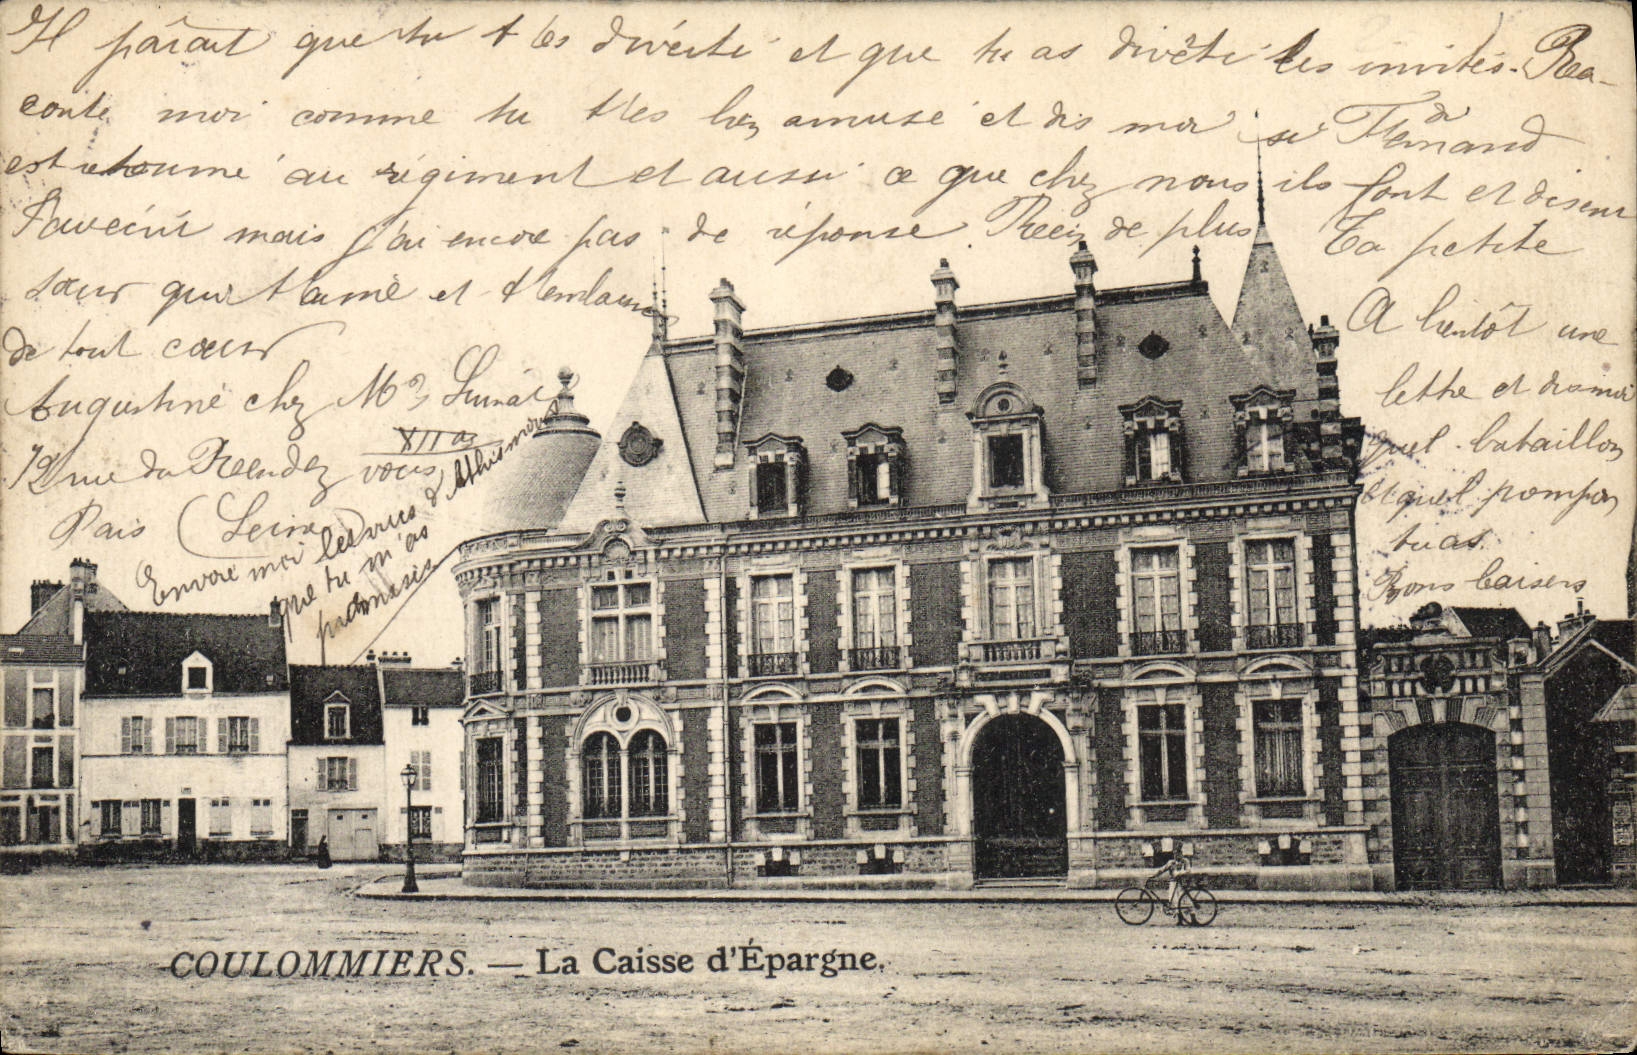 Il parait que tu t'es diverté et que tu as divêti les invités. Ra-
conte moi comme tu t'es bien amusé et dis moi si Fernand
est retourné au régiment et aussi ce que chez nous ils font et disent
mais j'ai encore pas de réponse. Rien de plus Ta petite
sœur qui t'aime et t'embrasse
de tout cœur
Augustine chez Mr
12 rue du Rendez vous XIIar
Paris (Seine
Envoie moi les vues d'Athis mons
que tu m'as
promises
A bientôt une
lettre et dis moi
quel bataillon
et quel pompon
tu as.
Bons baisers
COULOMMIERS. — La Caisse d'Épargne.